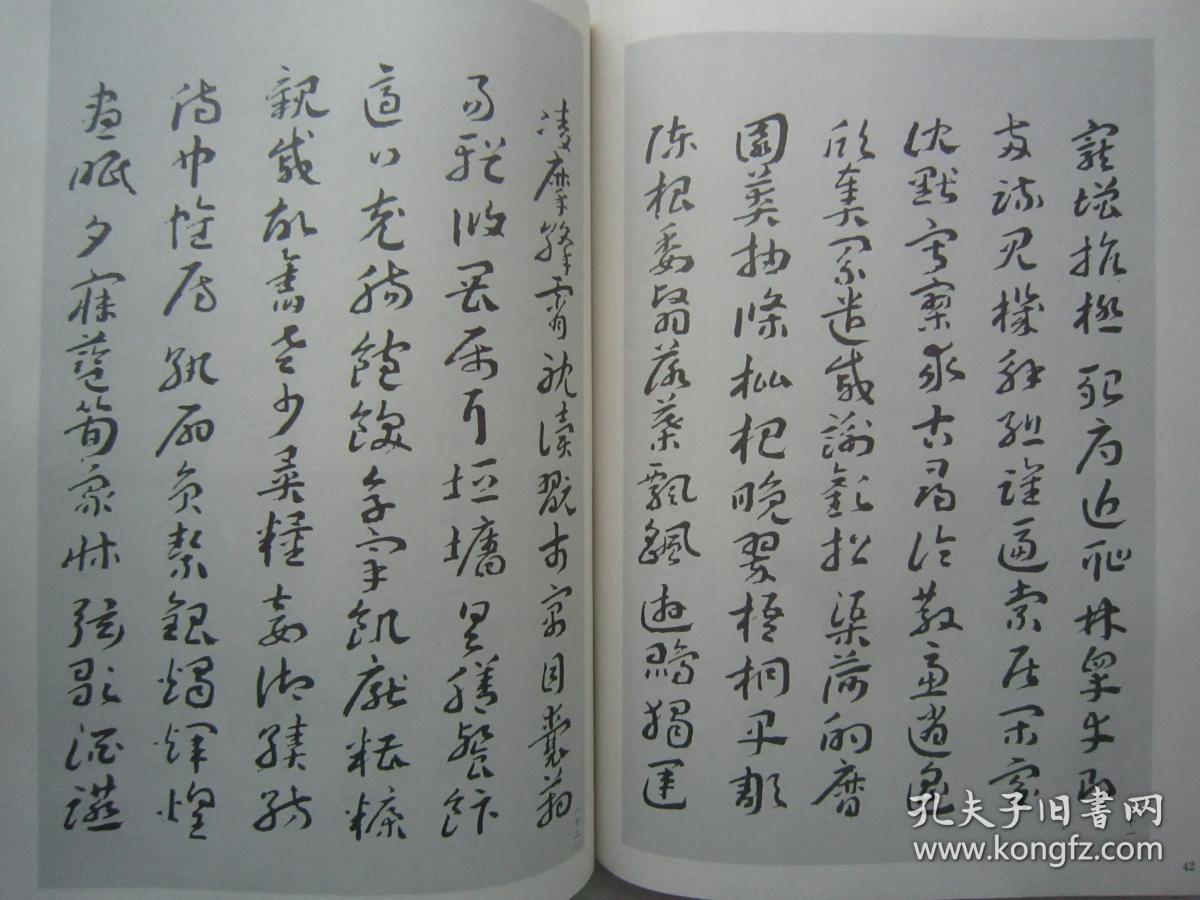 寵增抗極殆辱近恥林皋幸即
兩疏見機解組誰逼索居閑處
沈默寂寥求古尋論散慮逍遙
欣奏累遣慼謝歡招渠荷的歷
園莽抽條枇杷晚翠梧桐早彫
陳根委翳落葉飄颻遊鵾獨運
42
凌摩絳霄耽讀翫市寓目囊箱
易輶攸畏屬耳垣墻具膳飡飯
適口充腸飽飫烹宰飢厭糟糠
親戚故舊老少異糧妾御績紡
侍巾帷房紈扇員潔銀燭煒煌
晝眠夕寐藍筍象床弦歌酒讌
(十二)
孔夫子旧书网
www.kongfz.com